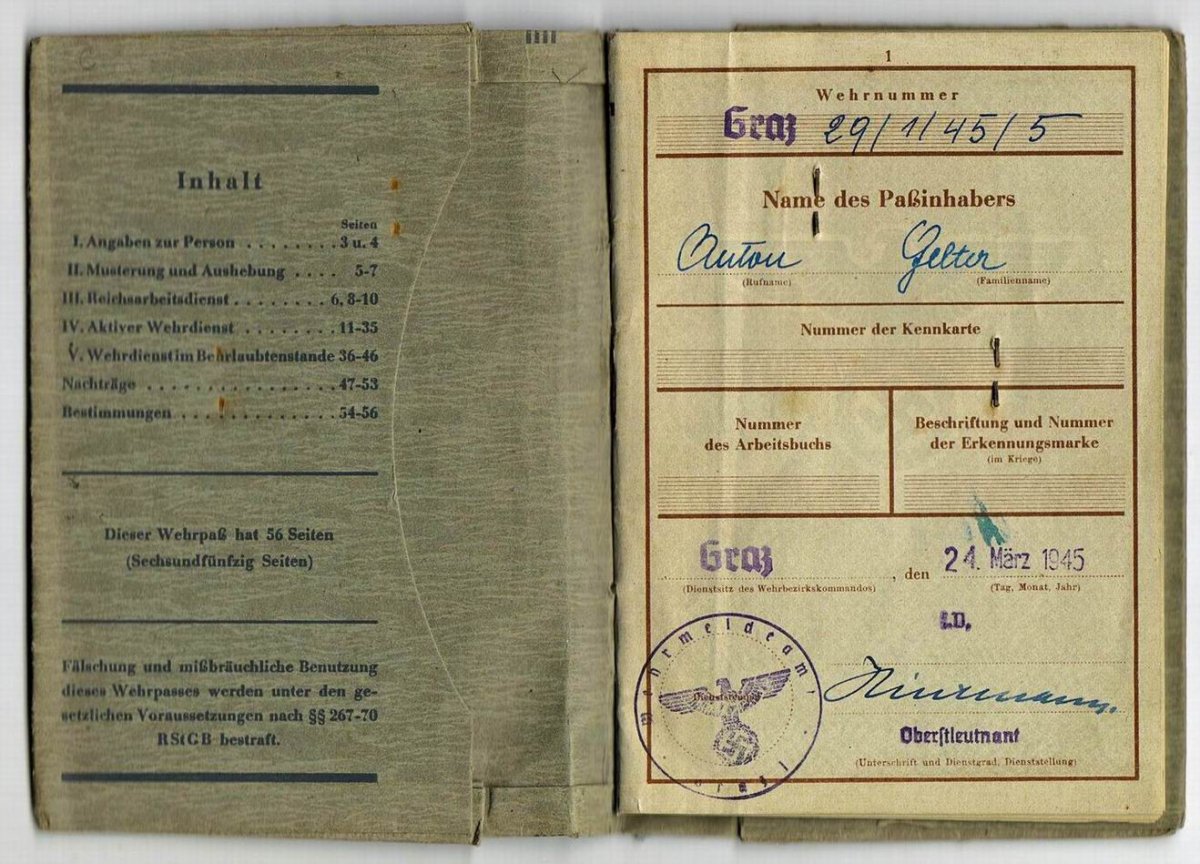 Inhalt
Seiten
I. Angaben zur Person . . . . . . . . 3 u. 4
II. Musterung und Aushebung . . . . 5-7
III. Reichsarbeitsdienst . . . . . . . . 6, 8-10
IV. Aktiver Wehrdienst . . . . . . . . . 11-35
V. Wehrdienst im Beurlaubtenstande 36-46
Nachträge . . . . . . . . . . . . . . . . 47-53
Bestimmungen . . . . . . . . . . . . . 54-56
Dieser Wehrpaß hat 56 Seiten
(Sechsundfünfzig Seiten)
Fälschung und mißbräuchliche Benutzung
dieses Wehrpasses werden unter den ge-
setzlichen Voraussetzungen nach §§ 267-70
RStGB bestraft.
1
Wehrnummer
Graz 29/1/45/5
Name des Paßinhabers
Anton Gelter
(Rufname) (Familienname)
Nummer der Kennkarte
Nummer
des Arbeitsbuchs
Beschriftung und Nummer
der Erkennungsmarke
(im Kriege)
Graz, den 24. März 1945
(Dienstsitz des Wehrbezirkskommandos) (Tag, Monat, Jahr)
Wehrmeldeamt
Graz
(Dienststempel)
Oberstleutnant
(Unterschrift und Dienstgrad, Dienststellung)